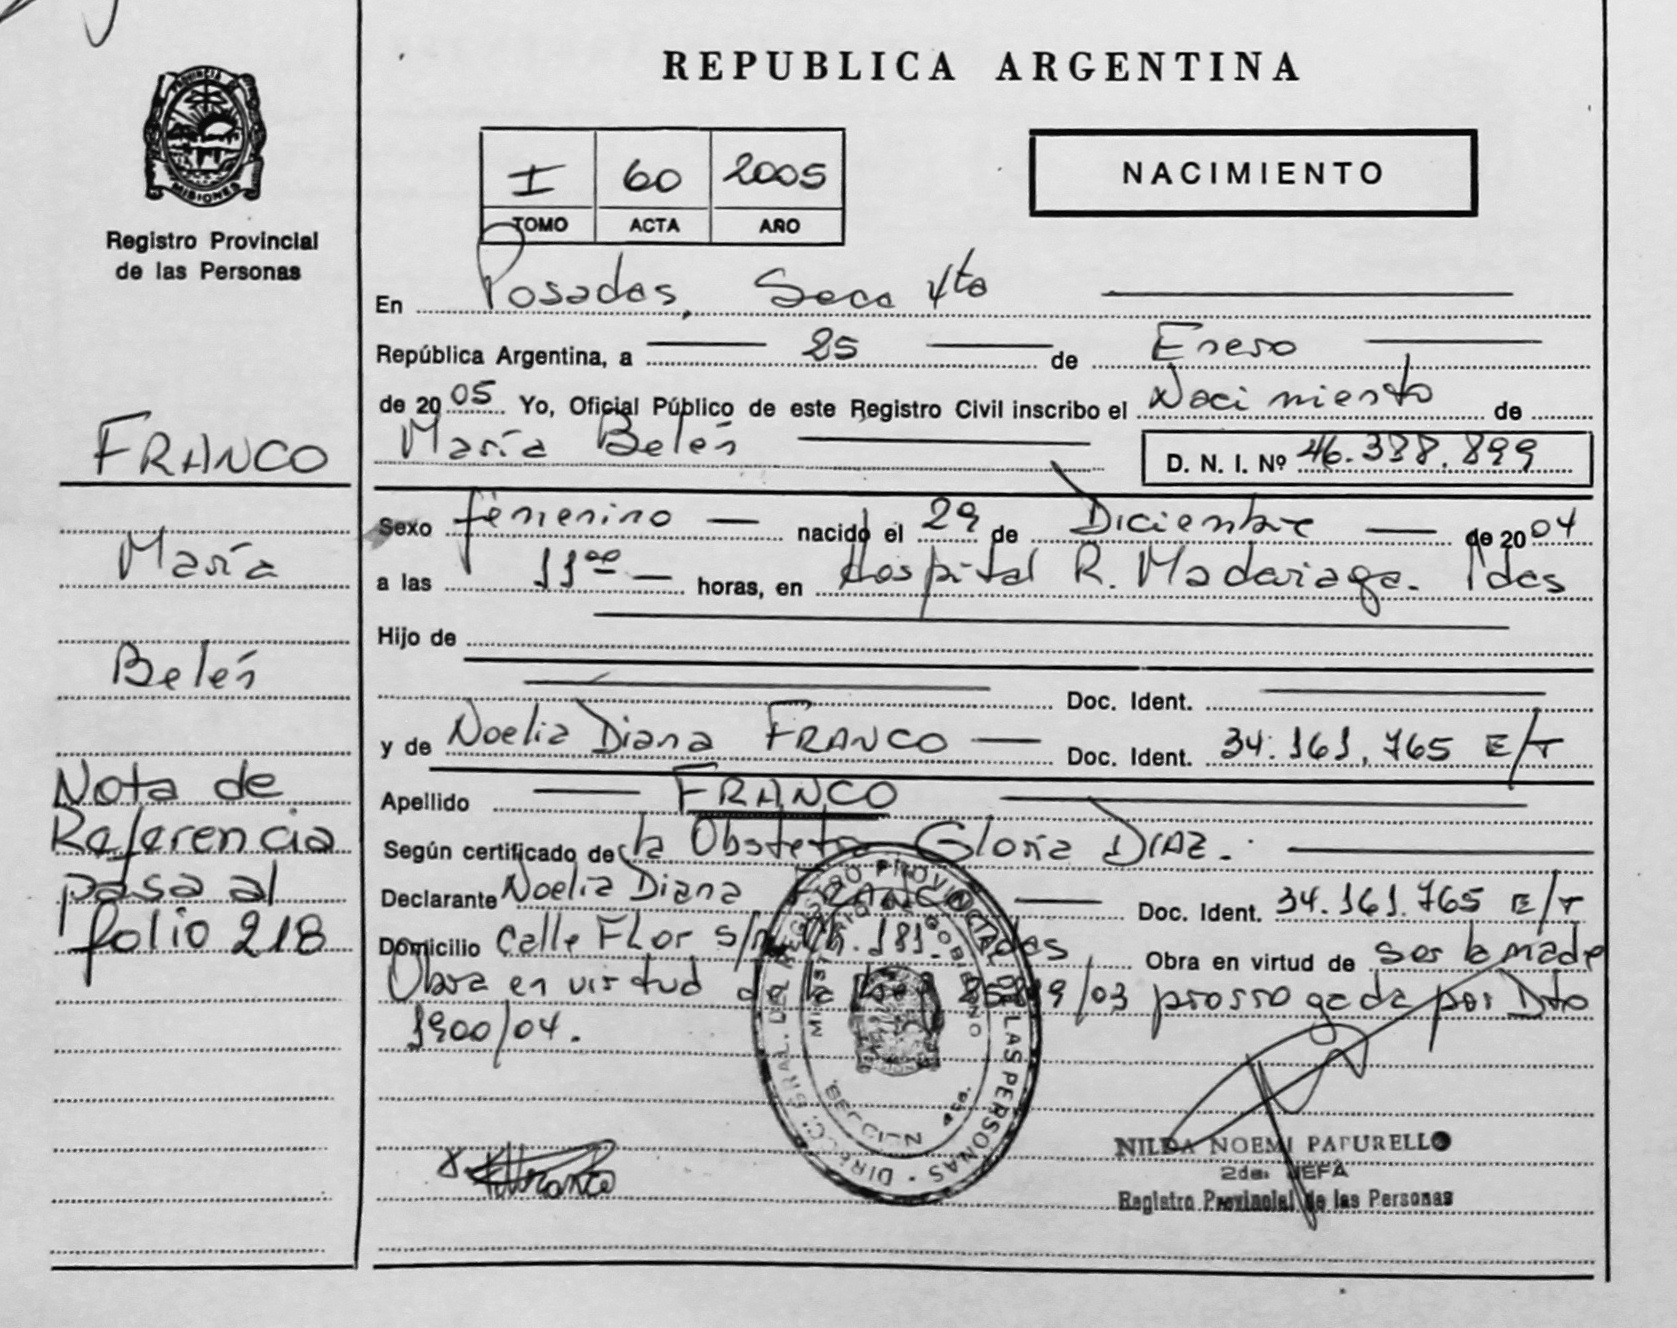 REPUBLICA ARGENTINA
PROVINCIA DE
MISIONES
Registro Provincial
de las Personas
I 60 2005
TOMO ACTA AÑO
NACIMIENTO
En Posadas, Secc 4ta
República Argentina, a 25 de Enero
de 2005 Yo, Oficial Público de este Registro Civil inscribo el Nacimiento de
María Belén D. N. I. Nº 46.388.899
Sexo femenino nacido el 29 de Diciembre de 2004
a las 11 00 horas, en Hospital R. Madariaga. Pdas
Hijo de
Doc. Ident.
y de Noelia Diana FRANCO Doc. Ident. 34.161.765 E/T
Apellido FRANCO
Según certificado de la Obstetra Gloria DIAZ.
Declarante Noelia Diana FRANCO Doc. Ident. 34.161.765 E/T
Domicilio Calle FLor s/n Ch. 181. Pdas Obra en virtud de ser la madre
Obra en virtud de la Ley 25819/03 prorrogada por Dto
1900/04.
FRANCO
María
Belén
Nota de
Referencia
pasa al
folio 218
DIRECC. GRAL. DEL REGISTRO PROVINCIAL DE LAS PERSONAS
MINISTERIO DE GOBIERNO
SECCION 4ta.
NILDA NOEMI PAFURELLO
2da. JEFA
Registro Provincial de las Personas